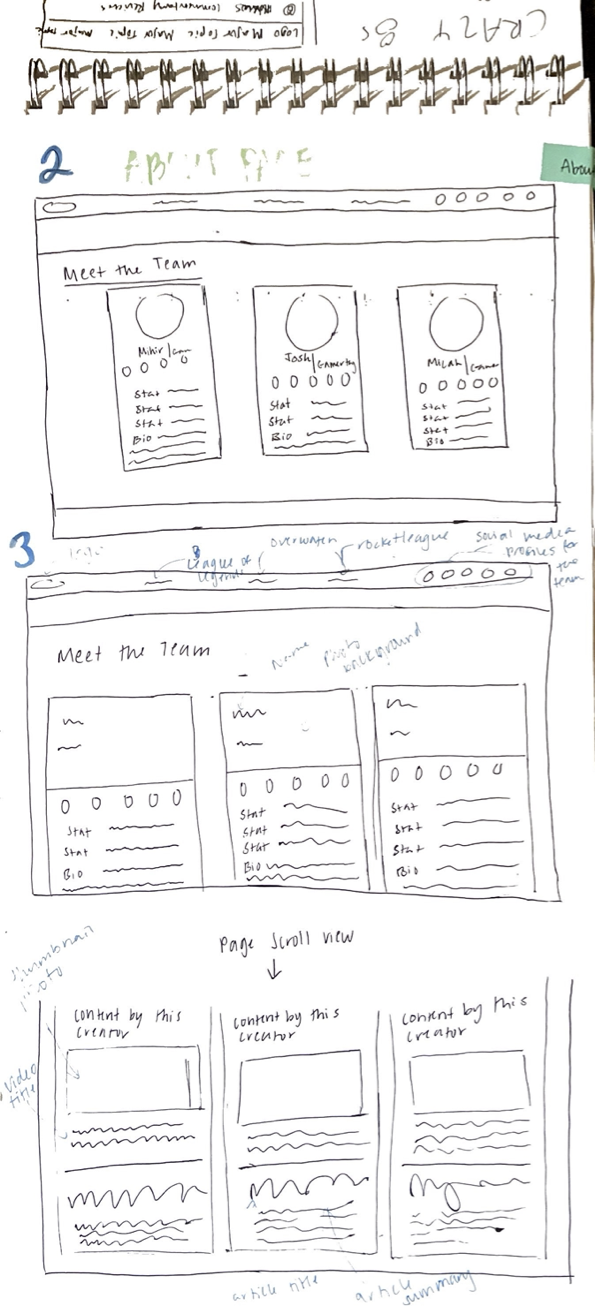 CRAZY 8s
Logo Major Topic Major Topic Major Topic
Commentary Reviews
2 ABOUT PAGE
Abou
Meet the Team
Mihir/Gam
Stat
Stat
Stat
Bio
Josh/Gamertag
Stat
Stat
Bio
Micah/Gamer
Stat
Stat
Stat
Bio
3
logo
League of
legends
overwatch
rocketleague
social media
profiles for
the
team
Meet the Team
Name
photo
background
Stat
Stat
Bio
Stat
Stat
Stat
Bio
Stat
Stat
Stat
Bio
Page Scroll view
thumbnail
photo
video
title
content by this
creator
content by this
creator
content by this
creator
article title
article
summary